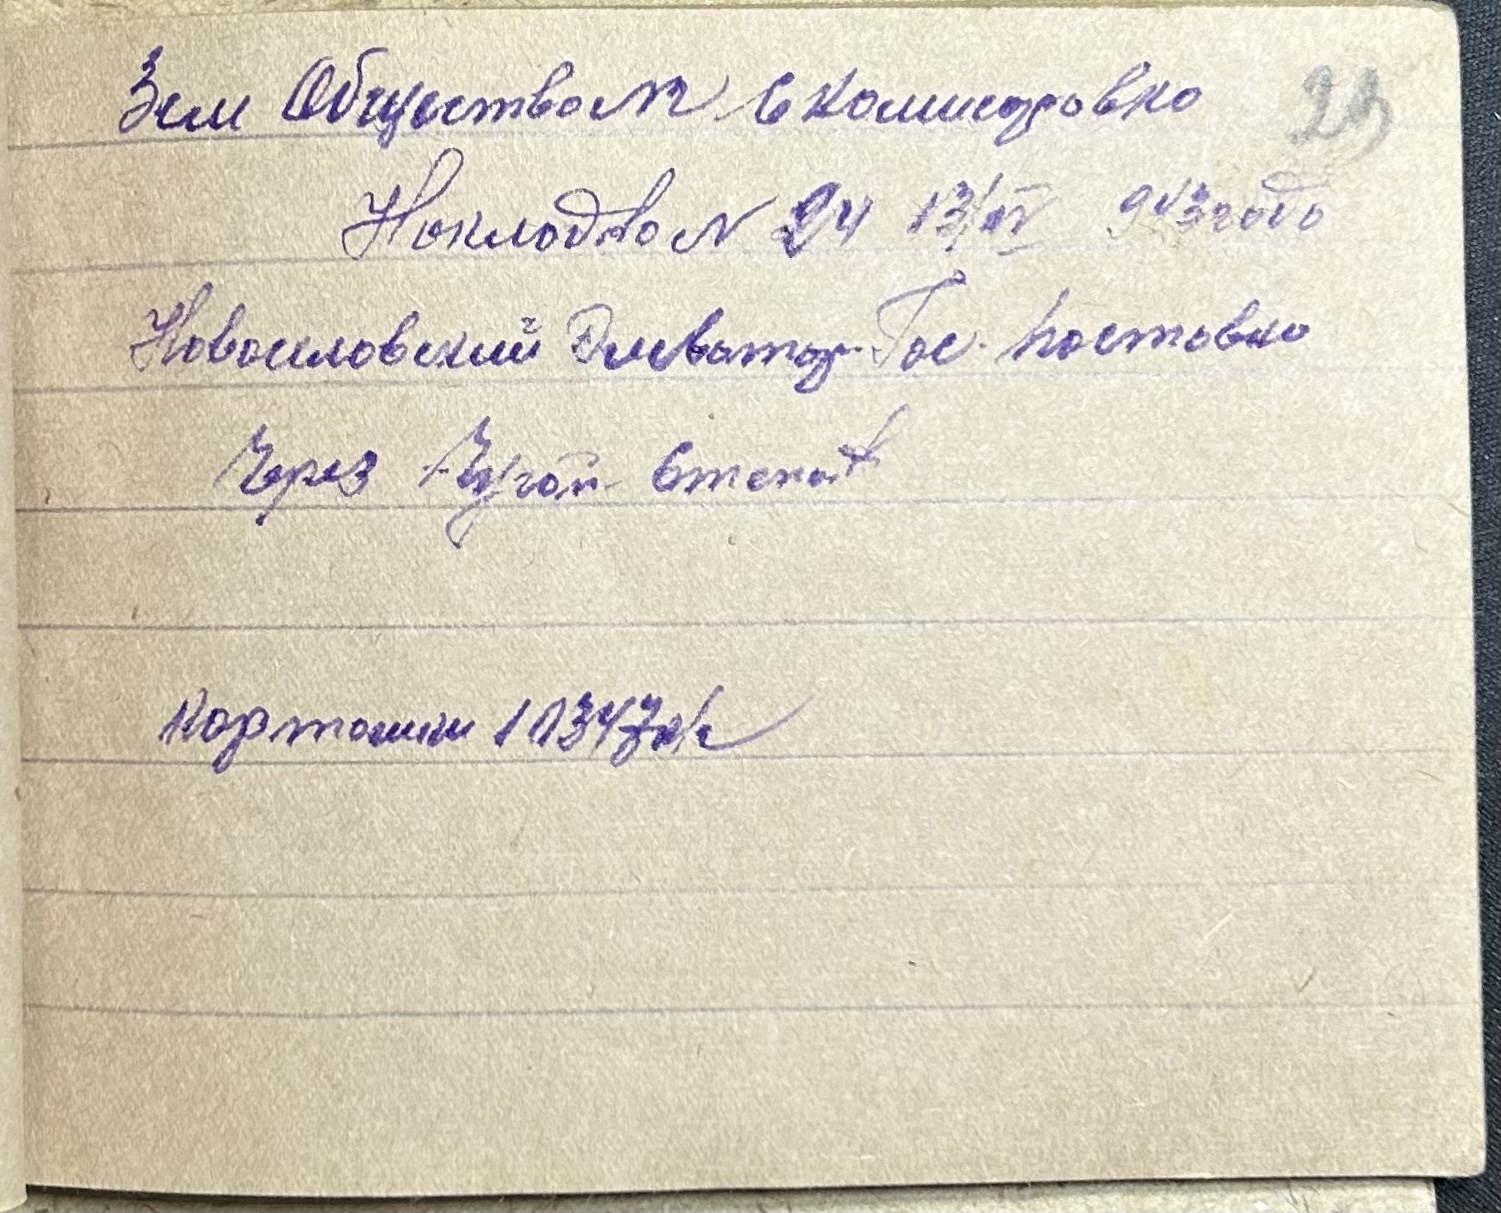 Зем Обществом с комисаровко
23
Накладная N 24 13/IV 943 года
Новоселовский Элеватор Гос. поставко
Через Степан
Картошки 11347 кг